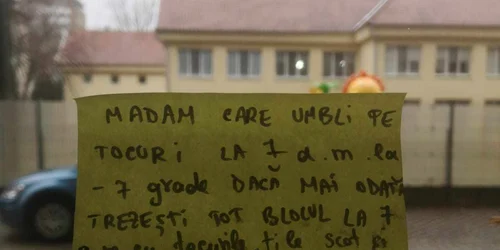 MADAM CARE UMBLi PE
TOCURi LA 7 a.m. la
- 7 grade DACĂ MAI ODATĂ
TREZEȘTI TOT BLOCUL LA 7
a.m cu tocurile ți le scot